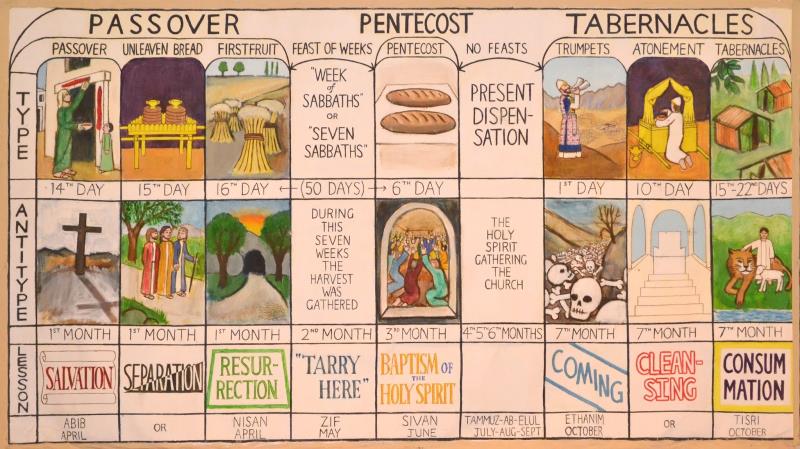 PASSOVER PENTECOST TABERNACLES
PASSOVER UNLEAVEN BREAD FIRSTFRUIT FEAST OF WEEKS PENTECOST NO FEASTS TRUMPETS ATONEMENT TABERNACLES
TYPE
"WEEK
of
SABBATHS"
OR
"SEVEN
SABBATHS"
PRESENT
DISPEN-
SATION
14TH DAY 15TH DAY 16TH DAY (50 DAYS) 6TH DAY 1ST DAY 10TH DAY 15TH-22ND DAYS
ANTITYPE
DURING
THIS
SEVEN
WEEKS
THE
HARVEST
WAS
GATHERED
THE
HOLY
SPIRIT
GATHERING
THE
CHURCH
1ST MONTH 1ST MONTH 1ST MONTH 2ND MONTH 3RD MONTH 4TH 5TH 6TH MONTHS 7TH MONTH 7TH MONTH 7TH MONTH
LESSON
SALVATION
SEPARATION
RESUR-
RECTION
"TARRY
HERE"
BAPTISM OF
THE
HOLY SPIRIT
COMING
CLEAN-
SING
CONSUM
MATION
ABIB
APRIL
OR
NISAN
APRIL
ZIF
MAY
SIVAN
JUNE
TAMMUZ-AB-ELUL
JULY-AUG-SEPT
ETHANIM
OCTOBER
OR
TISRI
OCTOBER